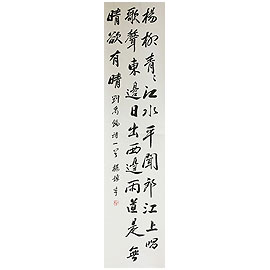 楊柳青〻江水平聞郎江上唱
歌聲東邊日出西邊雨道是無
晴卻有晴 劉禹錫詩一首